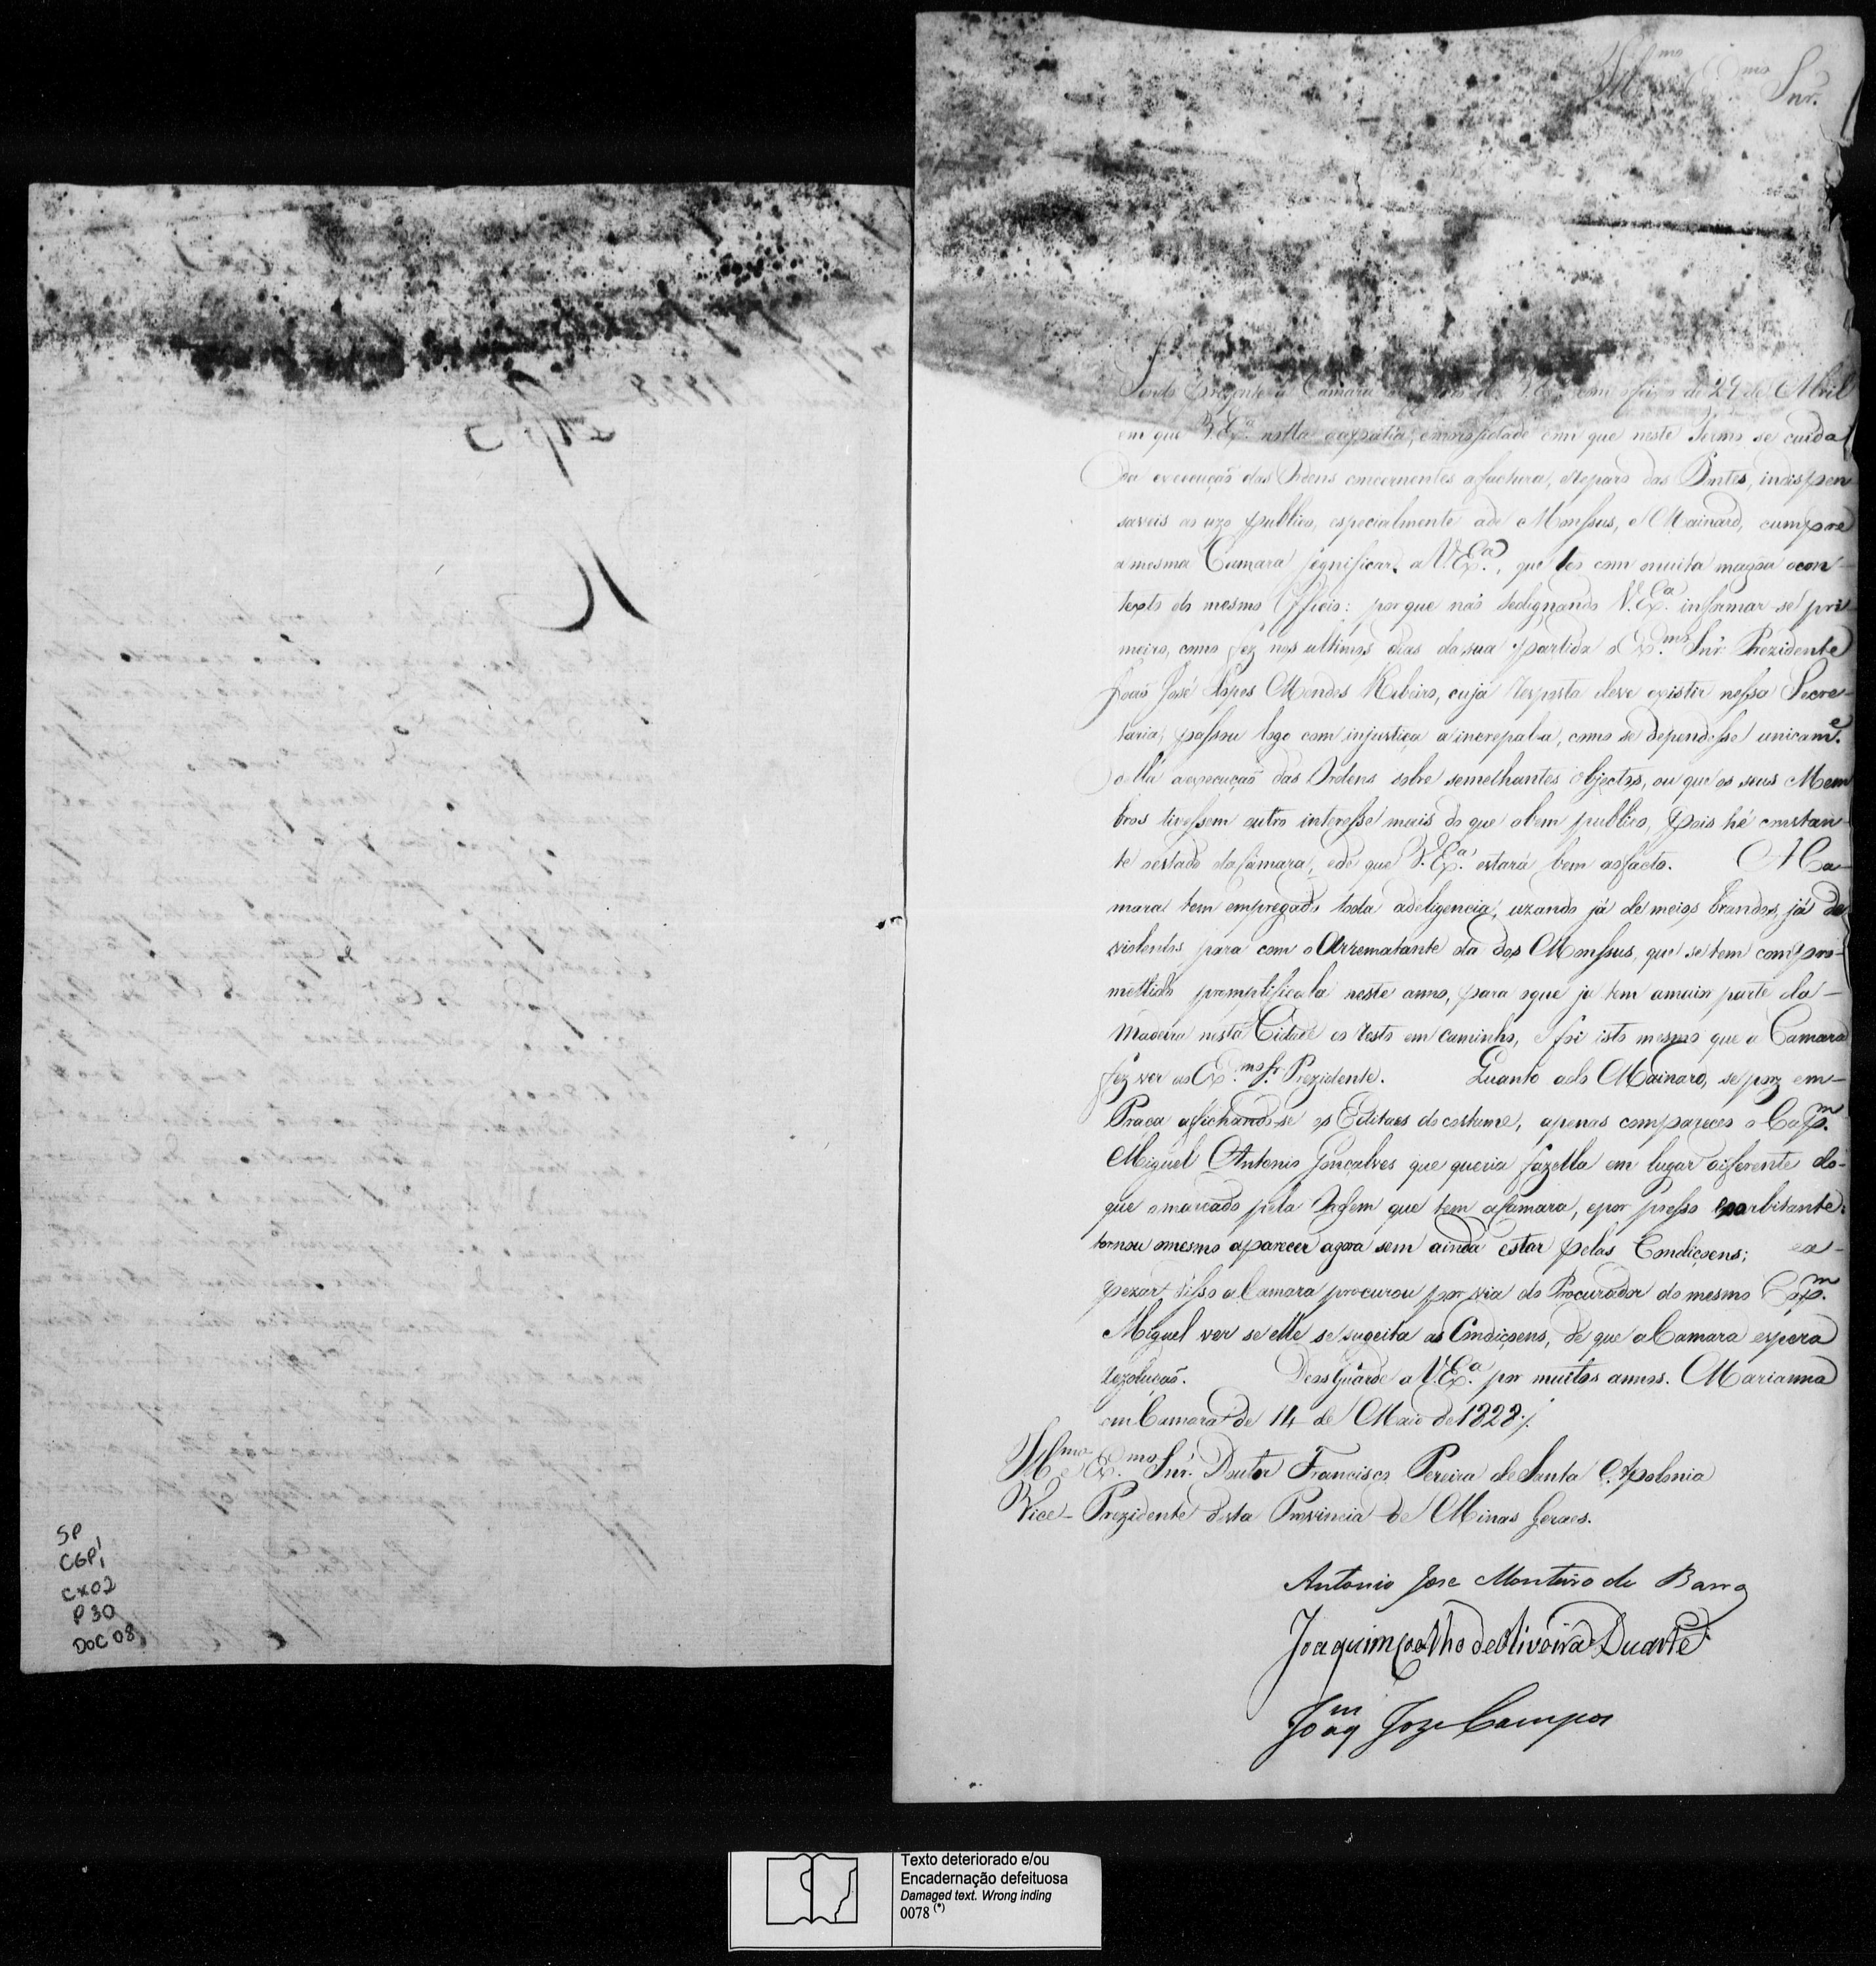 Ill.mo Ex.mo Snr.
Sendo prezente a Camara officio de 29 de Abril
em que V. Ex.a nota a apatia, e morosidade com que neste Termo se cuida
na execução das Ordens concernentes a factura, e Reparo das Pontes, indispen-
saveis ao uzo publico, especialmente a de Monsus, e Mainard, cumpre
a mesma Camara significar a V. Ex.a, que leo com muita magoa o con-
texto do mesmo Officio: por que não sedignando V. Ex.a informar-se pri-
meiro, como fez nos ultimos dias da sua partida o Ex.mo Snr Prezidente
João José Lopes Mendes Ribeiro, cuja resposta deve existir nessa Secre-
taria, passou logo com injustiça a increpal-a, como se dependesse unicam.e
della a execução das Ordens sobre semelhantes objectos, ou que os seus Mem
bros tivessem outro interesse mais do que o bem publico, pois hé constan-
te o estado da Camara, e de que V. Ex.a estará bem ao facto. A Ca-
mara tem empregado toda a deligencia, uzando já de meios brandos, já de
violentos para com o Arrematante da dos Monsus, que se tem compro-
mettido promptifica-la neste anno, para o que ja tem a maior parte da-
Madeira nesta Cidade e o resto em caminho, e foi isto mesmo que a Camara
fez ver ao Ex.mo Sr. Prezidente. Quanto a do Mainard, se poz em-
Praça affichando-se os Editaes do costume, apenas compareceo o Cap.m
Miguel Antonio Gonçalves que queria fazella em lugar diferente do-
que o marcado pela Ordem que tem a Camara, e por presso exorbitante:
tornou o mesmo aparecer agora sem ainda estar pelas Condiçoens; ea-
pezar disso a Camara procurou por via do Procurador do mesmo Cap.m
Miguel ver se elle se sugeita as Condiçoens, de que a Camara espera
rezolução. Deos Guarde a V. Ex.a por muitos annos. Marianna
em Camara de 14 de Maio de 1828 ./
Ill.mo e Ex.mo Snr. Doutor Francisco Pereira de Santa Apolonia
Vice-Prezidente desta Provincia de Minas Geraes.
Antonio Jose Monteiro de Barros
Joaquim Coelho de Oliveira Duarte
Joaq.m Joze Campos
SP
CGP1
CX02
P30
DOC 08
Texto deteriorado e/ou
Encadernação defeituosa
Damaged text. Wrong inding
0078 (*)